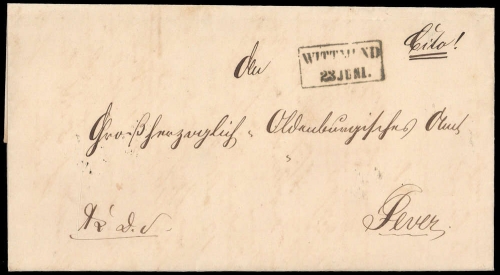 Cito!
WITTMUND
23 JUNI.
An
Großherzoglich-Oldenburgisches Amt
Jever.